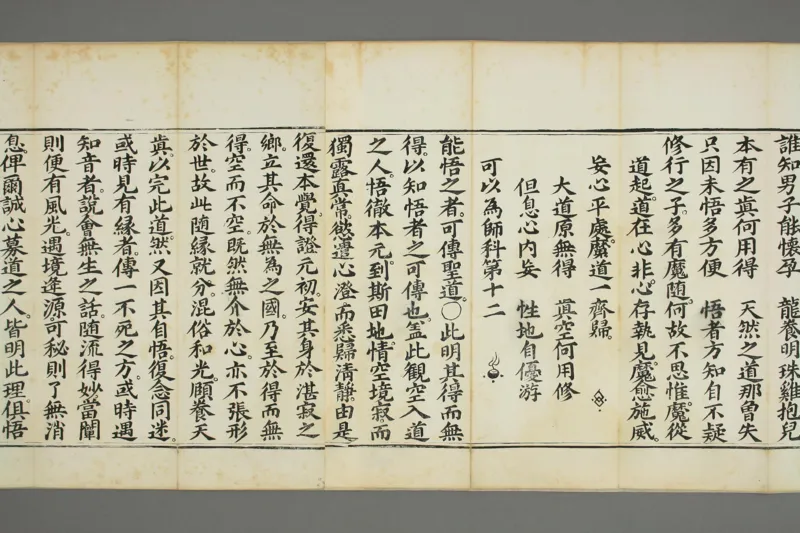 誰知男子能懷孕　龍養明珠雞抱兒
本有之真何用得　天然之道那曾失
只因未悟多方便　悟者方知自不疑
修行之子。多有魔隨。何故不思惟。魔從
道起。道在心非心。存執見。魔愈施威。
妄心平處。縻道一齊歸。
大道原無得　真空何用修
但息心內妄　性地自優游
可以為師科第十二
能悟之者。可傳聖道。〇此明其得而無
得。以知悟者之可傳也。盖此觀空入道
之人。悟徹本元。到斯田地。情空境寂。而
獨露真常。慾遣心澄。而悉歸清靜。由是。
復還本覺。得證元初。安其身於湛寂之
鄉。立其命於無為之國。乃至於得而無
得。空而不空。既然無介於心。亦不張形
於世。故此隨緣就分。混俗和光。頤養天
真。以完此道。然又因其自悟。復念同迷。
或時見有緣者。傳一不死之方。或時遇
知音者。說會無生之話。隨流得妙。當闡
則便有風光。遇境逢源。可秘則了無消
息。俾爾誠心募道之人。皆明此理。俱悟